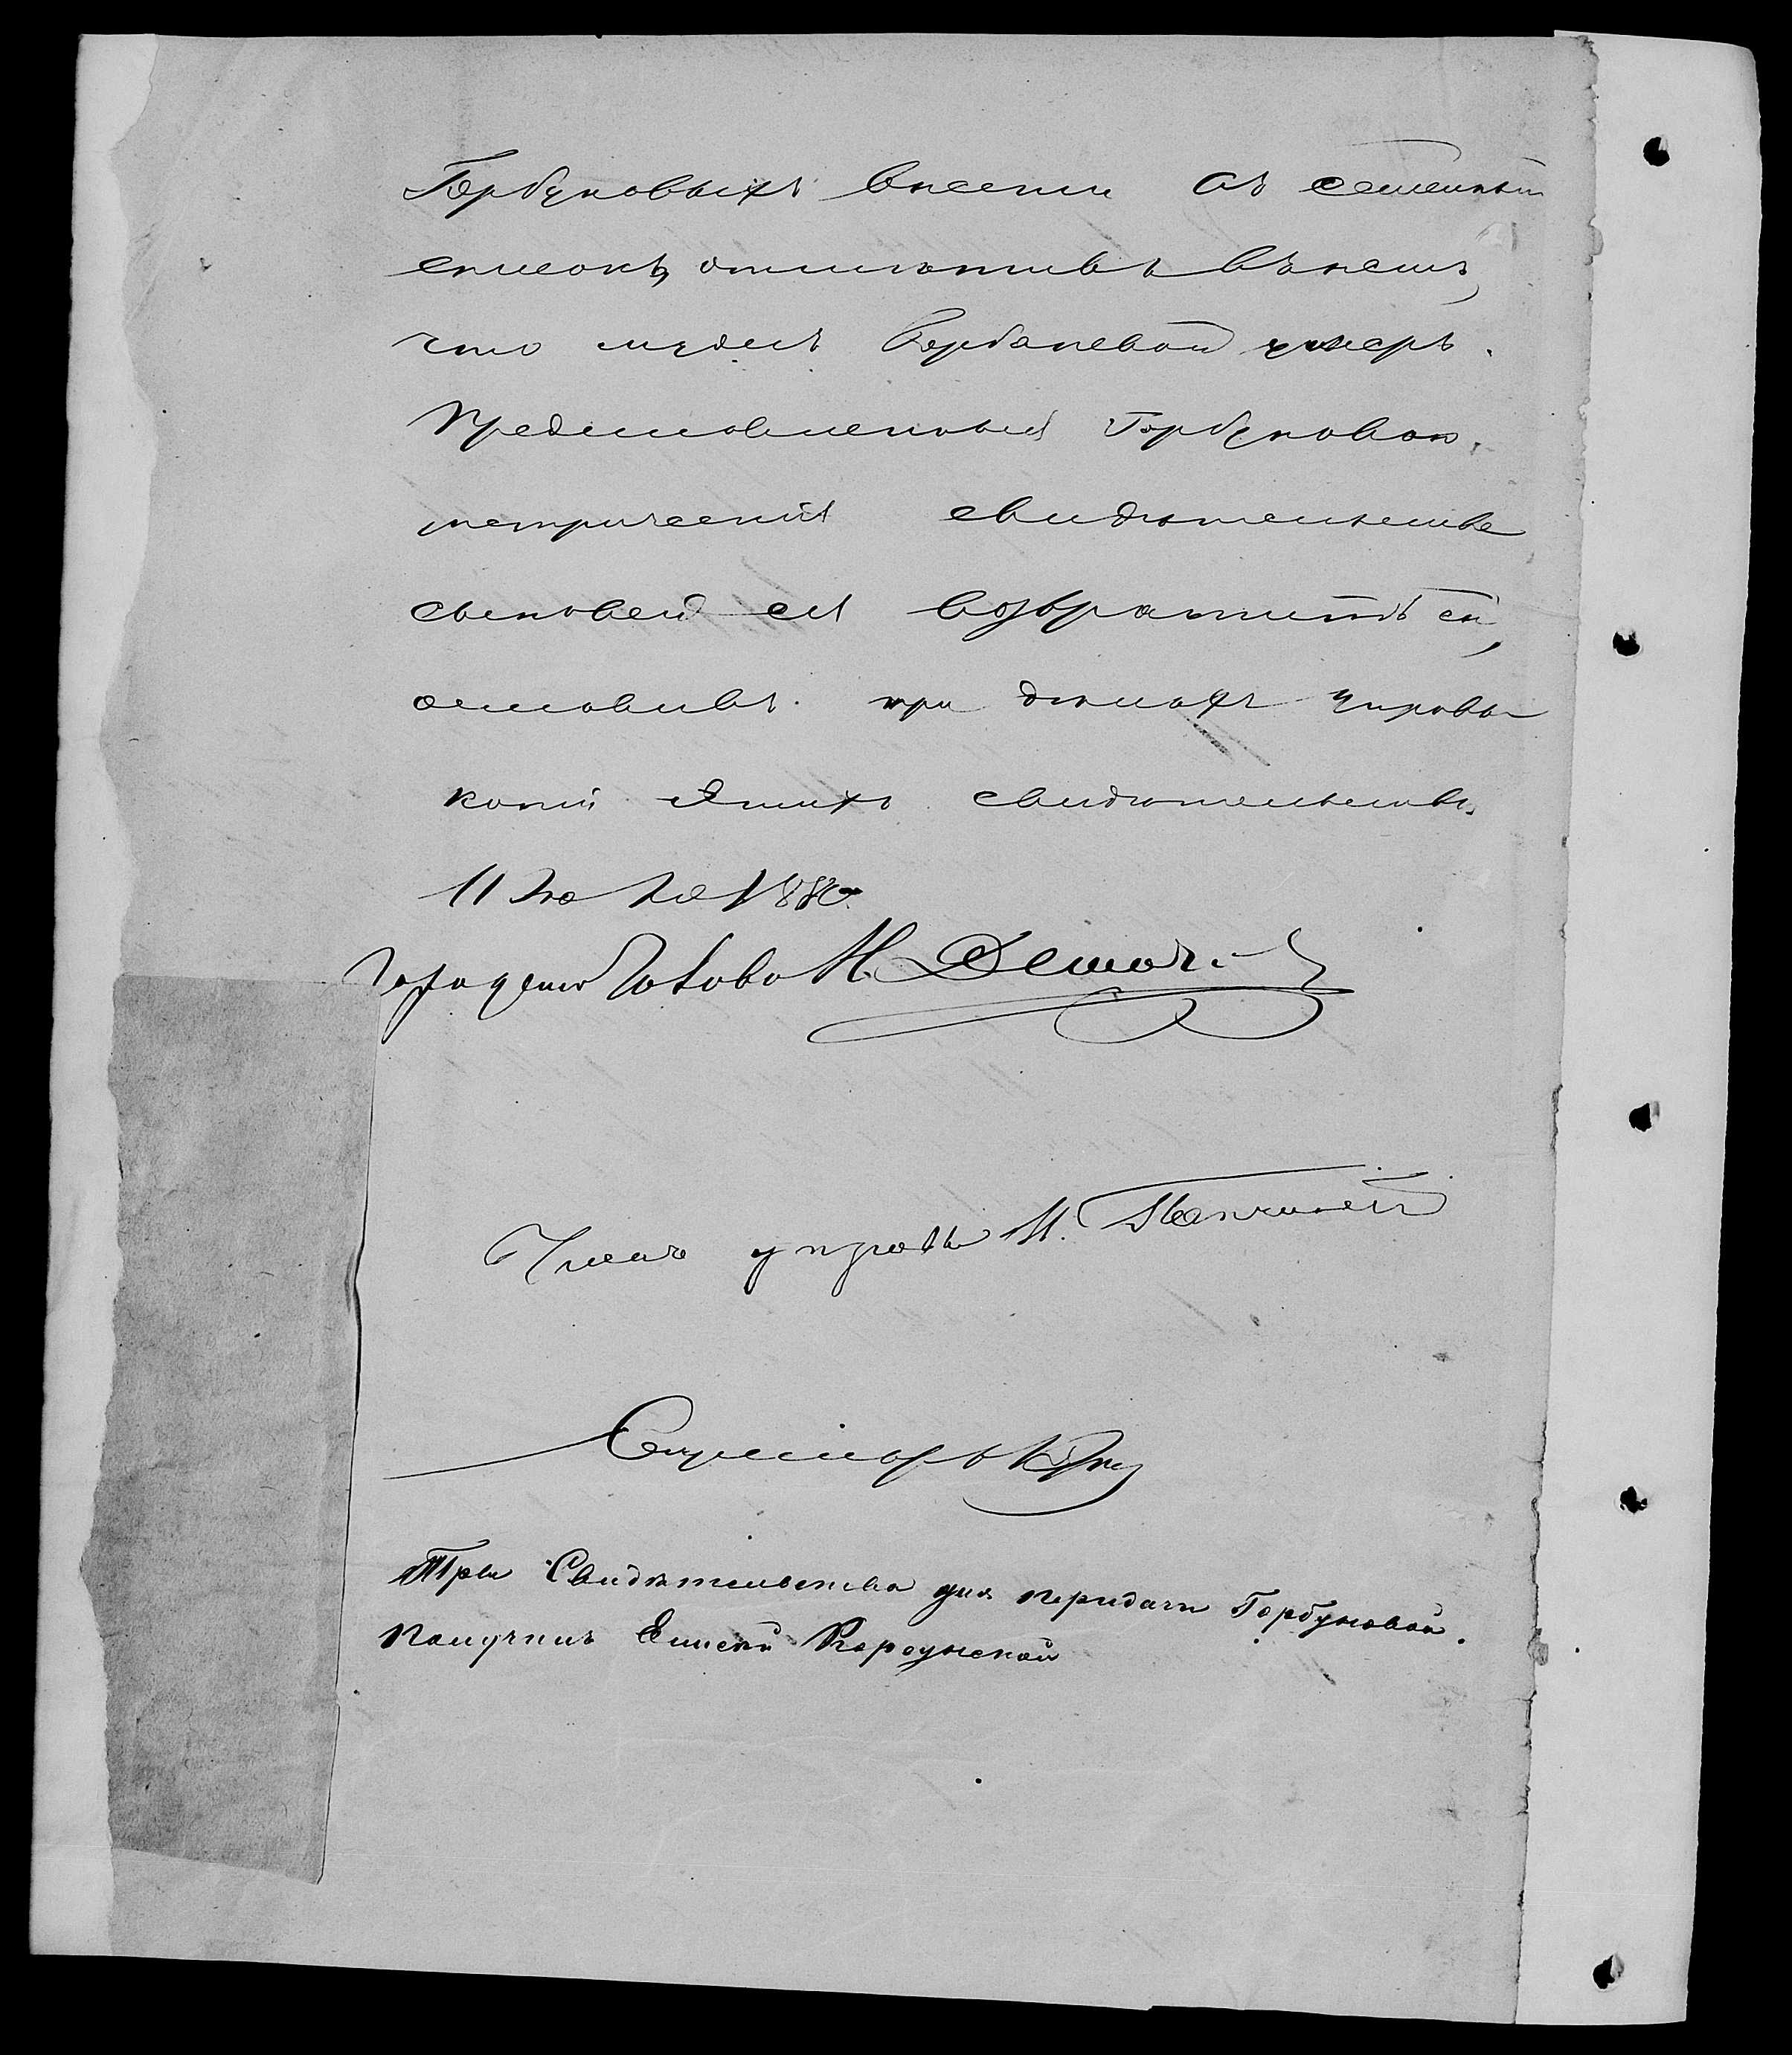 Горбуновыхъ внести въ семейный
списокъ, отмѣтивъ въ немъ,
что мужъ Горбуновой умеръ.
Представленныя Горбуновою
метрическія свидѣтельства
сыновей ея возвратить ей,
оставивъ при дѣлахъ Управы
копіи этихъ свидѣтельствъ.
11 Іюля 1880
Городской Голова Н.
Членъ управы М.
Секретарь
Три Свидѣтельства для передачи Горбуновой.
Получилъ Елисей Корсунской